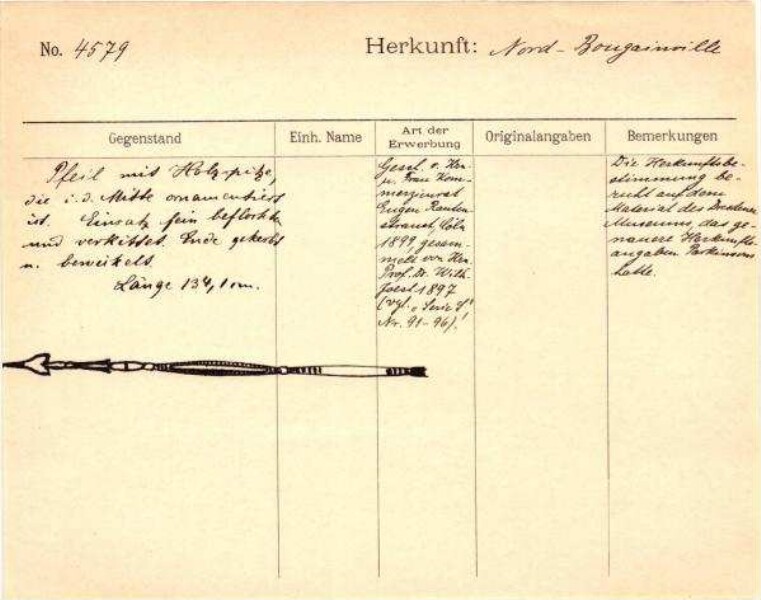 No. 4579
Herkunft: Nord-Bougainville
Gegenstand
Einh. Name
Art der Erwerbung
Originalangaben
Bemerkungen
Pfeil mit Holzspitze,
die i. d. Mitte ornamentiert
ist. Einsatz fein beflochten
und verkittet. Ende gekerbt
u. bewickelt.
Länge 134,1 cm.
Gesch. v. Herr
u. Frau Kom-
merzienrat
Eugen Rauten-
strauch, Cöln
1899, gesam-
melt von Herr
Prof. Dr. Wilh.
Joest 1897
(vgl. „Serie S"
Nr. 91-96)!
Die Herkunftsbe-
stimmung be-
ruht auf dem
Material des Dresdener
Museums, das ge-
nauere Herkunfts-
angaben Parkinsons
hatte.